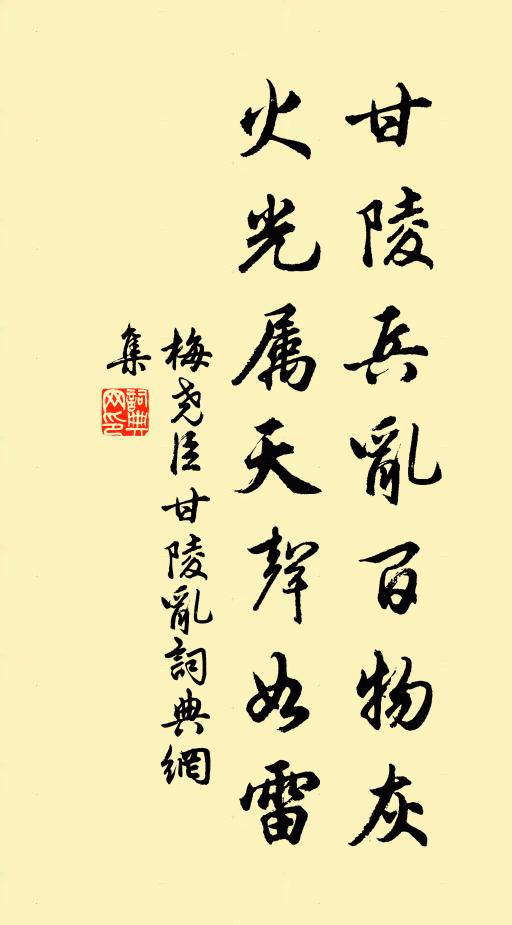 甘陵兵亂百物灰
火光属天聲如雷
梅尧臣甘陵亂詞典網
集
詞典
网印